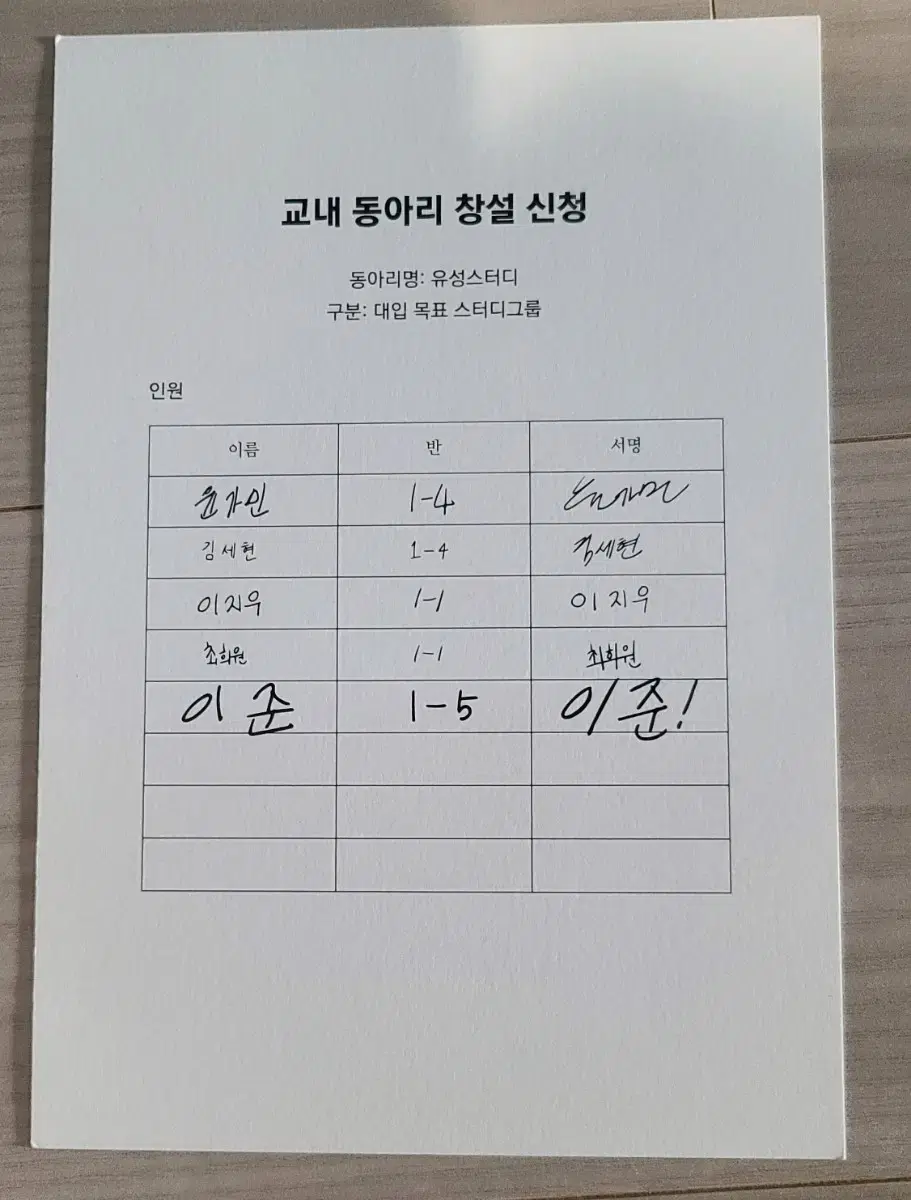 교내 동아리 창설 신청
동아리명: 유성스터디
구분: 대입 목표 스터디그룹
인원
이름 반 서명
윤가민 1-4 윤가민
김세현 1-4 김세현
이지우 1-1 이지우
최희원 1-1 최희원
이준 1-5 이준!